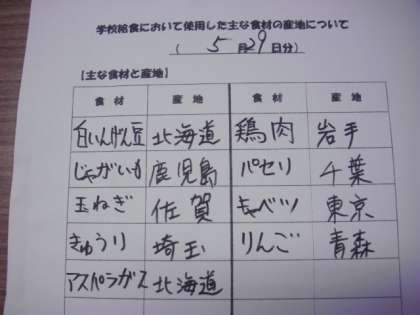 学校給食において使用した主な食材の産地について
( 5月29日分)
【主な食材と産地】
食材 産地 食材 産地
白いんげん豆 北海道 鶏肉 岩手
じゃがいも 鹿児島 パセリ 千葉
玉ねぎ 佐賀 キャベツ 東京
きゅうり 埼玉 りんご 青森
アスパラガス 北海道